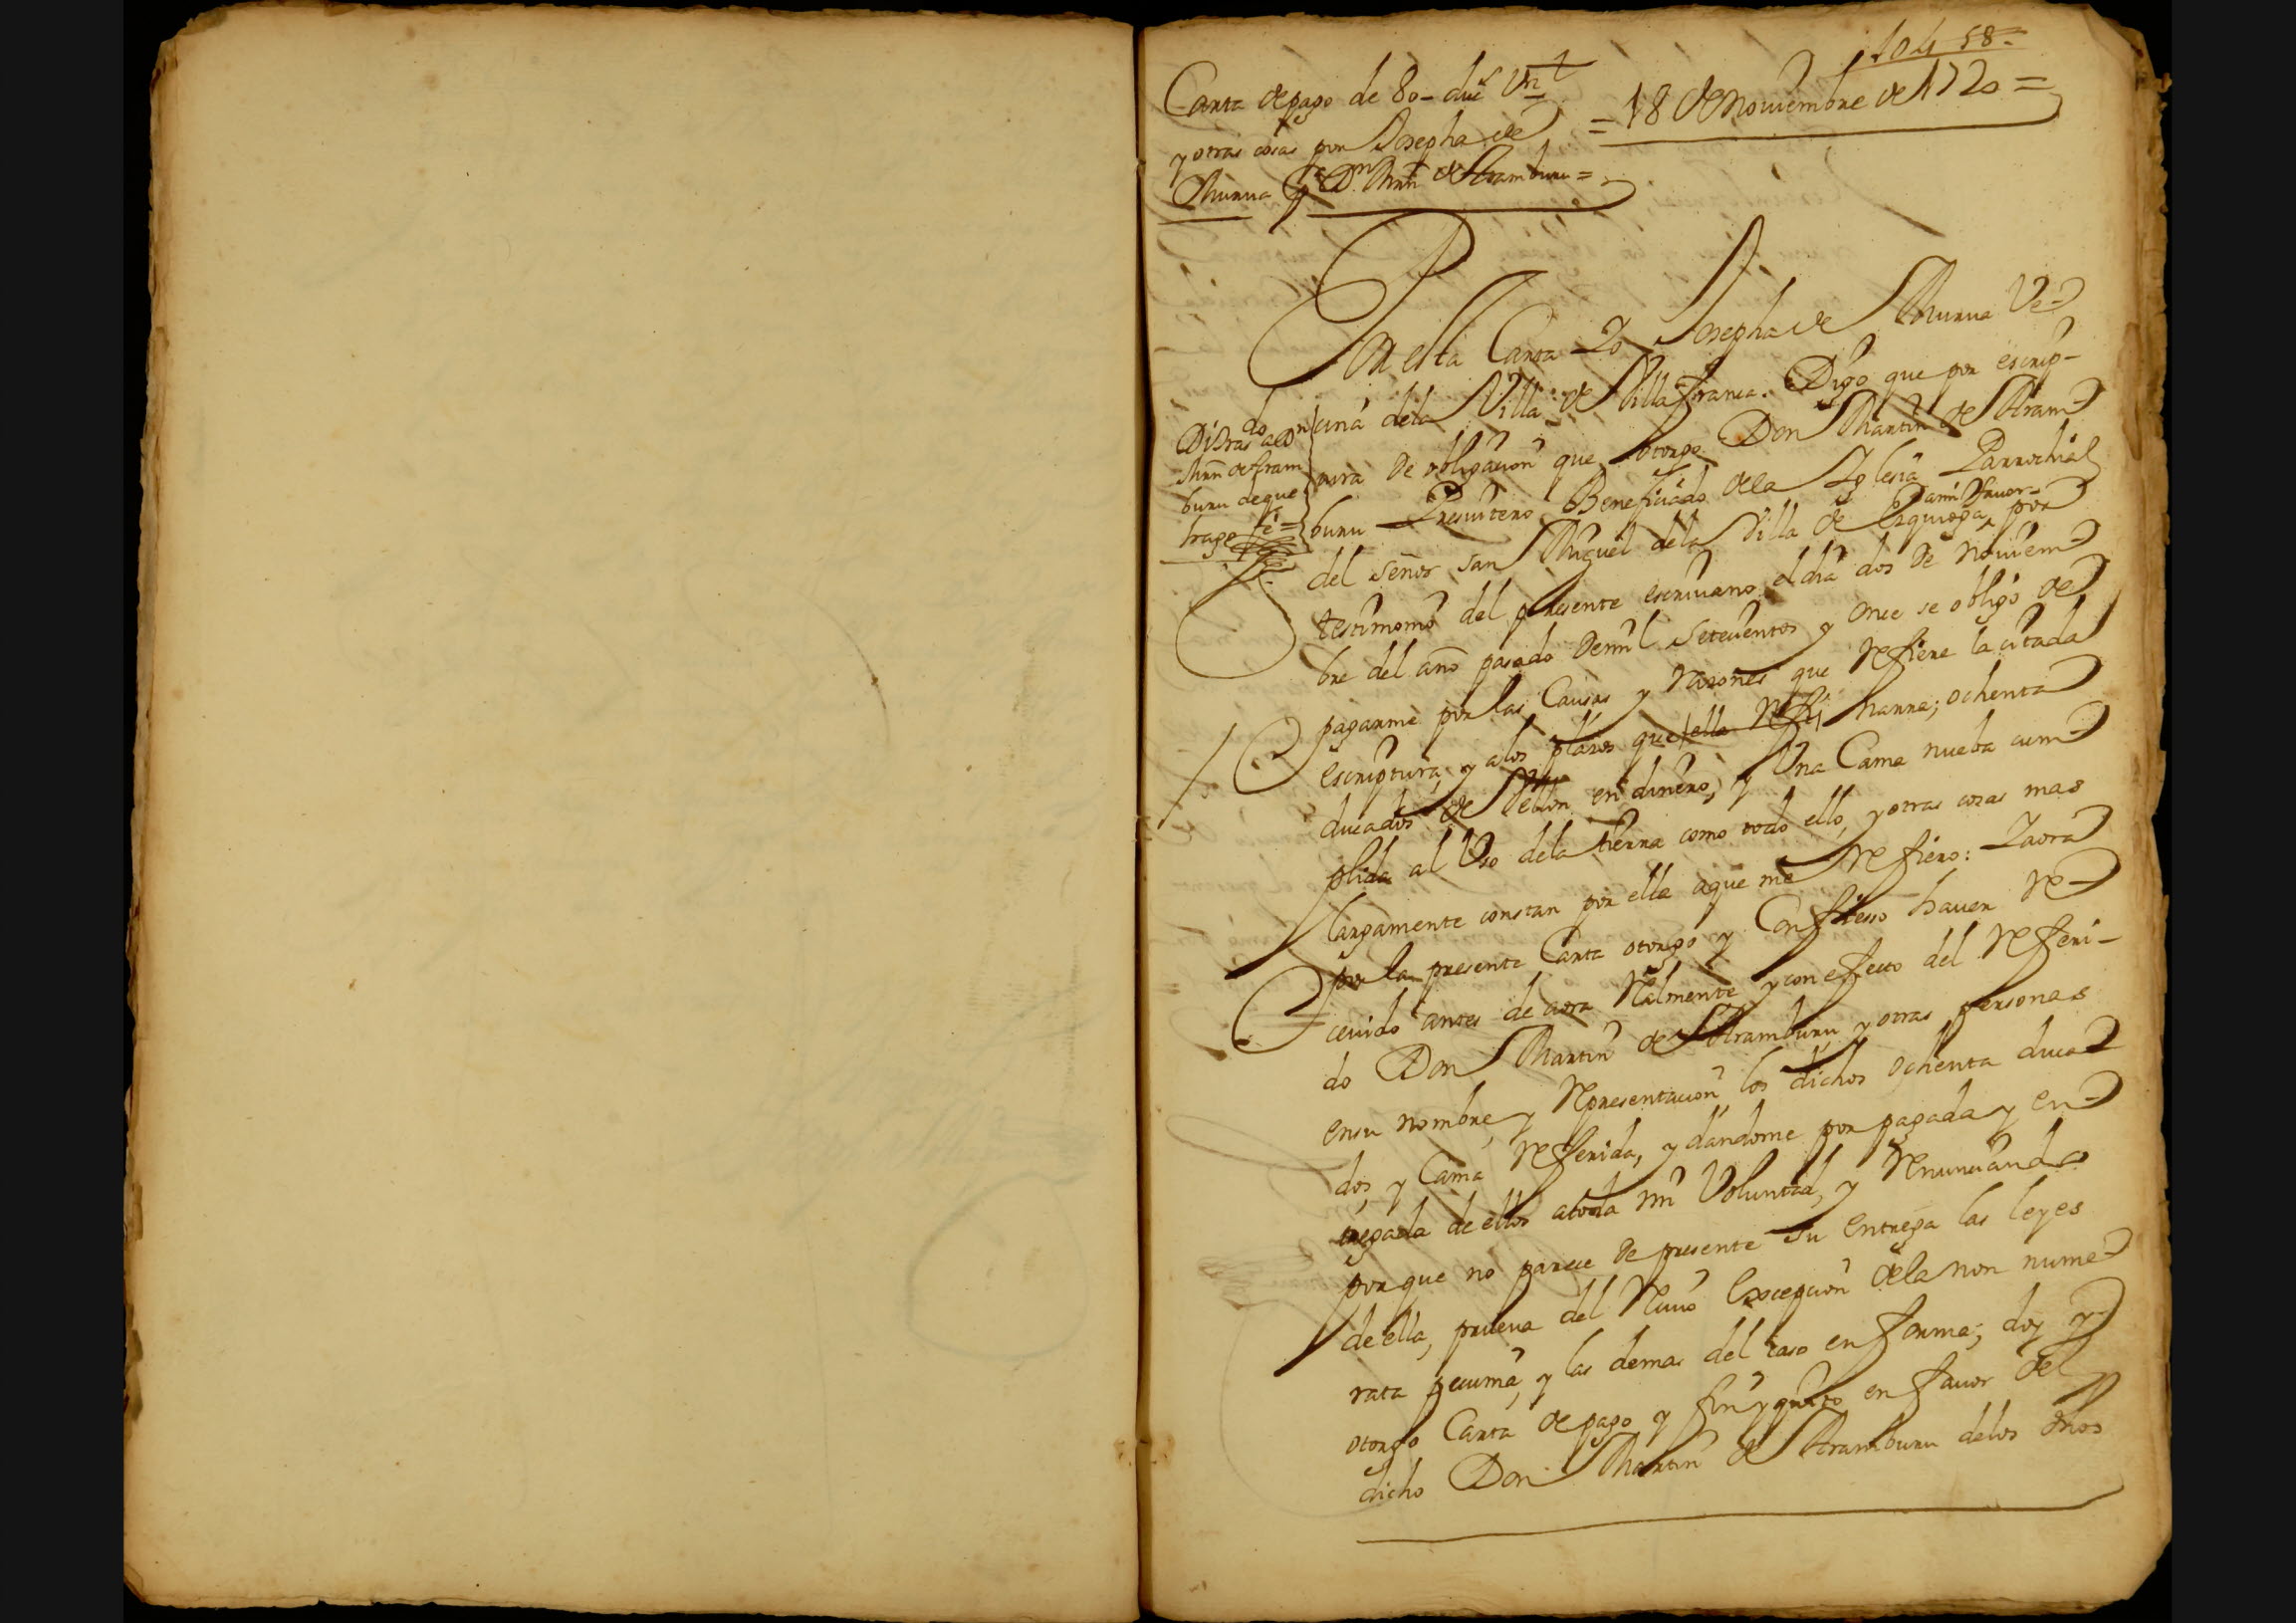 104 58
Carta de pago de 80 duc.s Vn
y otras cosas por Josepha de
Murua Pa Dn Mrn de Aramburu =
= 18 de Noviembre de 1720 =
Por esta Carta Yo Josepha de Murua Ve-
cina dela Villa de Villafranca. Digo que por escrip-
Di trasdo a Dn
Mrn de Aram
buru de que
hago fe =
tura de obligacion que otorgo Don Martin de Aram-
buru Presuitero Beneficiado dela Yglesia Parrochial
del señor san Miguel dela Villa de Ezquioga, por
a mi fauor
testimonio del presente escriuano el dia dos de Nouiem-
bre del año pasado de mil setecientos y once se obligó de
pagarme por las Causas y razones que refiere la citada
escriptura, y alos plazos que ella narra; ochenta
ducados de Vellon en dinero, y Una Cama nueba cum-
plida al Uso dela tierra como todo ello, y otras cosas mas
largamente constan por ella aque me refiero: Y aora
por la presente Carta otorgo y Confiesso hauer re-
ceuido antes de aora realmente y con efecto del referi-
do Don Martin de Aramburu y otras personas
ensu nombre, y representacion los dichos ochenta duca-
dos, y Cama referida, y dandome por pagada y en-
tregada de ellos atoda mi Voluntad, y renunciando
porque no parece de presente su entrega las leyes
de ella, prueua del reciuo excepcion dela non nume-
rata pecunia, y las demas del caso en forma; doy y
otorgo Carta de pago y fin y quito en fauor del
dicho Don Martin de Aramburu delos dhos